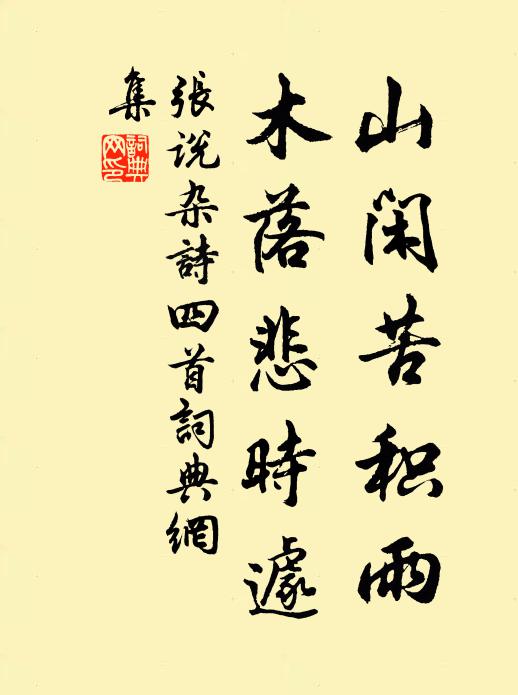 山闲苦积雨
木落悲時遽
張说杂詩四首詞典網
集
詞典
网印